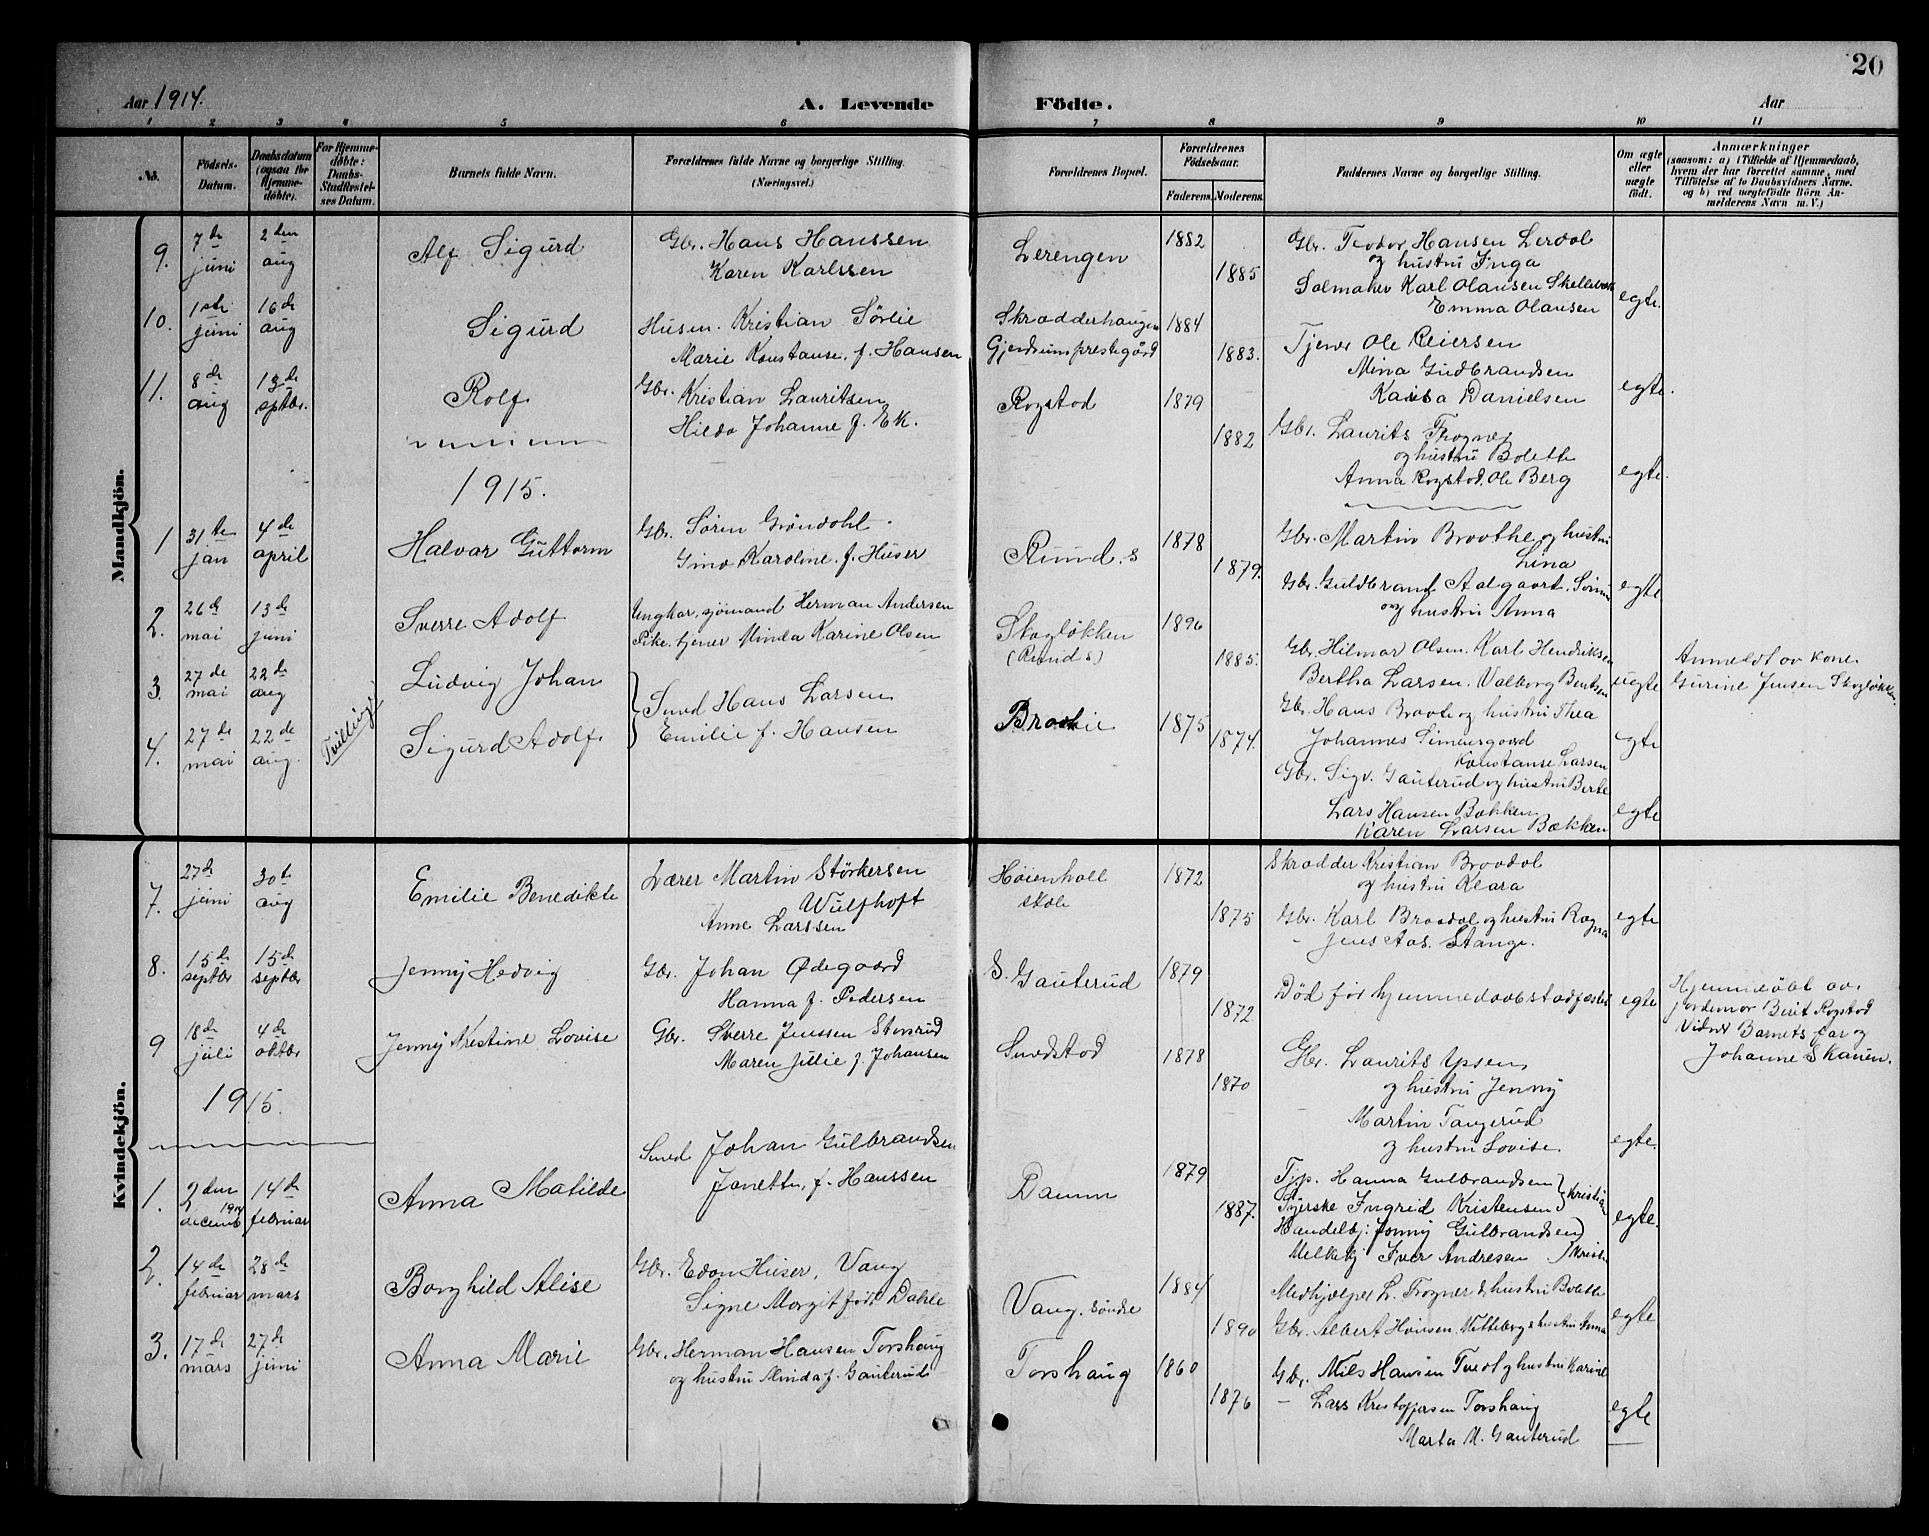 20
Aar 1914.
A. Levende Födte.
Aar
1 2 3 4 5 6 7 8 9 10 11
No.
Födsels-Datum.
Daabsdatum (ogsaa for Hjemme-döbte).
For Hjemme-döbte: Daabs-Stadfæstel-ses Datum.
Barnets fulde Navn.
Forældrenes fulde Navne og borgerlige Stilling.
(Næringsvei.)
Forældrenes Bopæl.
Forældrenes Födselsaar.
Faderens. Moderens.
Faddernes Navne og borgerlige Stilling.
Om ægte eller uægte födt.
Anmærkninger
(saasom: a) i Tilfælde af Hjemmedaab, hvem der har forrettet samme, med Tilföielse af to Daabsvidners Navne, og b) ved uægtefödte Börn Anmelderens Navn m. V.)
Mandkjön.
9. 7de juni 2den aug Alf Sigurd
Gbr. Hans Hanssen
Karen Karlssen
Lerengen 1882 1885
Gbr. Teodor Hansen Lerdal
og hustru Inga
Salmaker Karl Olausen
Emma Olausen
egte.
10. 1ste juni 16de aug Sigurd
Husm. Kristian Sørlie
Marie Konstanse f. Hansen
Skradderhaugen
Gjerdrum prestegård
1884 1883.
Tjener Ole Reiersen
Mina Gudbrandsen
Kaisa Danielsen
egte.
11. 8de aug 13de septbr. Rolf
Gbr. Kristian Lauritsen
Hilda Johanne f. Ek.
Rogstad 1879 1882
Gbr. Laurits Frogner
og hustru Bolette
Anna Rogstad. Ole Berg
egte.
1915.
1 31te jan 4de april Halvar Guttorm
Gbr. Søren Grøndahl.
Gina Karoline f. Huser
Ruud. s 1878 1879.
Gbr. Martin Braathe og hustru
Lina
Gbr. Guldbrand Aalgaard,
og hustru Anna
egte
2. 26de mai 13de juni Sverre Adolf
Ungkar, sjømand Herman Andersen
Pike, tjener Minda Karine Olsen
Skogløkken
(Ruud s)
1896 1885.
Gbr. Hilmar Olsen. Karl Hendriksen
Bertha Larsen. Valborg Berntsen
uegte
Anmeldt av kone
Gurine Jensen Skogløkken
3. 27de mai 22de aug Ludvig Johan
4. 27de mai 22de aug. Tvillinger Sigurd Adolf
Smed Hans Larsen
Emilie f. Hansen
1875 1874.
Gbr. Hans Braate og hustru Thea
Johannes Simensgaard
Konstanse Larsen
egte
Gbr. Sigv. Gauterud og hustru Berte
Lars Hansen Bækken
Karen Larsen Bækken
egte
Kvindekjön.
7. 27de juni 30te aug Emilie Benedikte
Lærer Martin Størkersen
Wulfhoft
Anne Larssen
Høienhall
skole
1872 1875
Skradder Kristian Braadal
og hustru Klara
Gbr. Karl Braadal og hustru Ragna
- Jens Aas. Stange.
egte
8. 15de septbr 15de septbr Jenny Hedvig
Gbr. Johan Ødegaard
Hanna f. Pedersen
S. Gauterud 1879 1872.
Død før hjemmedaabstadfæstes
egte
Hjemmedøbt av
jordemor Berit Rogstad
Vidner Barnets far og
Johanne Skauen.
9 18de juli 4de oktbr Jenny Kristine Lovise
Gbr. Sverre Jenssen Storsrud
Maren Julie f. Johansen
Smedstad 1878 1870
Gbr. Laurits Ypsen
og hustru Jenny
Martin Tangerud
og hustru Lovise.
egte.
1915.
1. 2den decemb 1914 14de februar Anna Matilde
Smed Johan Gulbrandsen
Janette, f. Hanssen
Damm 1879 1887.
Tjp. Hanna Gulbrandsen
Tjerske Ingrid Kristensen
Handelbj: Jonny Gulbrandsen
Melkekj Iver Andresen
egte.
2. 14de februar 28de mars Borghild Alise
Gbr. Edon Huser, Vang
Signe Margit født Dahle
Vang. søndre 1884 1890
Medhjælper L. Frogner & hustru Bolette
Gbr. Albert Hansen Vitteberg & hustru Anna
egte
3. 17de mars 27de juni Anna Marie
Gbr. Herman Hansen Torshaug
og hustru Minda f. Gauterud
Torshaug 1860 1876
Gbr. Nils Hansen Tvedt og hustru Karine
- Lars Kristoffersen Torshaug
Marta M. Gauterud
egte